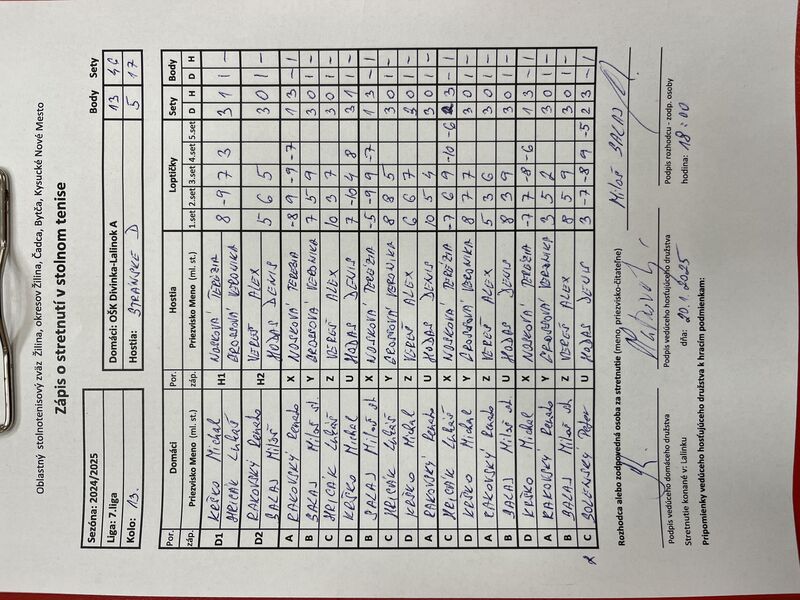 Oblastný stolnotenisový zväz Žilina, okresov Žilina, Čadca, Bytča, Kysucké Nové Mesto
Zápis o stretnutí v stolnom tenise
Sezóna: 2024/2025
Liga: 7.liga
Kolo: 13.
Body Sety
Domáci: OŠK Divinka-Lalinok A 13 46
Hostia: STRÁNSKE D 5 17
Por. Domáci Por. Hostia Loptičky Sety Body
záp. Priezvisko Meno (ml. st.) záp. Priezvisko Meno (ml. st.) 1.set 2.set 3.set 4.set 5.set D H D H
D1 KRŠKO Michal H1 NOSKOVÁ TERÉZIA 8 -9 7 3 3 1 1 -
HRIČÁK Lukáš BROSOVÁ VERONIKA
D2 RAKOVSKÝ Renato H2 VEREŠ ALEX 5 6 5 3 0 1 -
SALAJ Miloš HODAS DENIS
A RAKOVSKÝ Renato X NOSKOVÁ TERÉZIA -8 9 -9 -7 1 3 - 1
B SALAJ Miloš st. Y BROSOVÁ VERONIKA 7 5 9 3 0 1 -
C HRIČÁK Lukáš Z VEREŠ ALEX 10 3 7 3 0 1 -
D KRŠKO Michal U HODAS DENIS 7 -10 4 8 3 1 1 -
B SALAJ Miloš st. X NOSKOVÁ TERÉZIA -5 -9 9 -7 1 3 - 1
C HRIČÁK Lukáš Y BROSOVÁ VERONIKA 8 8 5 3 0 1 -
D KRŠKO Michal Z VEREŠ ALEX 6 6 7 3 0 1 -
A RAKOVSKÝ Renato U HODAS DENIS 10 5 4 3 0 1 -
C HRIČÁK Lukáš X NOSKOVÁ TERÉZIA -7 6 9 -10 -6 2 3 - 1
D KRŠKO Michal Y BROSOVÁ VERONIKA 8 7 7 3 0 1 -
A RAKOVSKÝ Renato Z VEREŠ ALEX 5 3 6 3 0 1 -
B SALAJ Miloš st. U HODAS DENIS 8 3 9 3 0 1 -
D KRŠKO Michal X NOSKOVÁ TERÉZIA -7 7 -8 -6 1 3 - 1
A RAKOVSKÝ Renato Y BROSOVÁ VERONIKA 3 5 2 3 0 1 -
B SALAJ Miloš st. Z VEREŠ ALEX 8 5 9 3 0 1 -
C SOLENSKÝ Peter U HODAS DENIS 3 -7 -8 9 -5 2 3 - 1
Rozhodca alebo zodpovedná osoba za stretnutie (meno, priezvisko-čitateľne) Miloš SALAJ
Podpis vedúceho domáceho družstva Podpis vedúceho hosťujúceho družstva Podpis rozhodcu - zodp. osoby
Stretnutie konané v: Lalinku dňa: 20.1.2025 hodina: 18:00
Pripomienky vedúceho hosťujúceho družstva k hracím podmienkam: